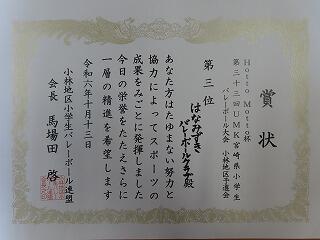 賞状
Hotto Motto杯
第三十三回UMK宮崎県小学生
バレーボール大会 小林地区予選会
第三位
はなみずき
バレーボールクラブ殿
あなた方はたゆまない努力と
協力によってスポーツの
成果をみごとに発揮しました
今日の栄誉をたたえさらに
一層の精進を希望します
令和六年十月十三日
小林地区小学生バレーボール連盟
会長 馬場田 啓